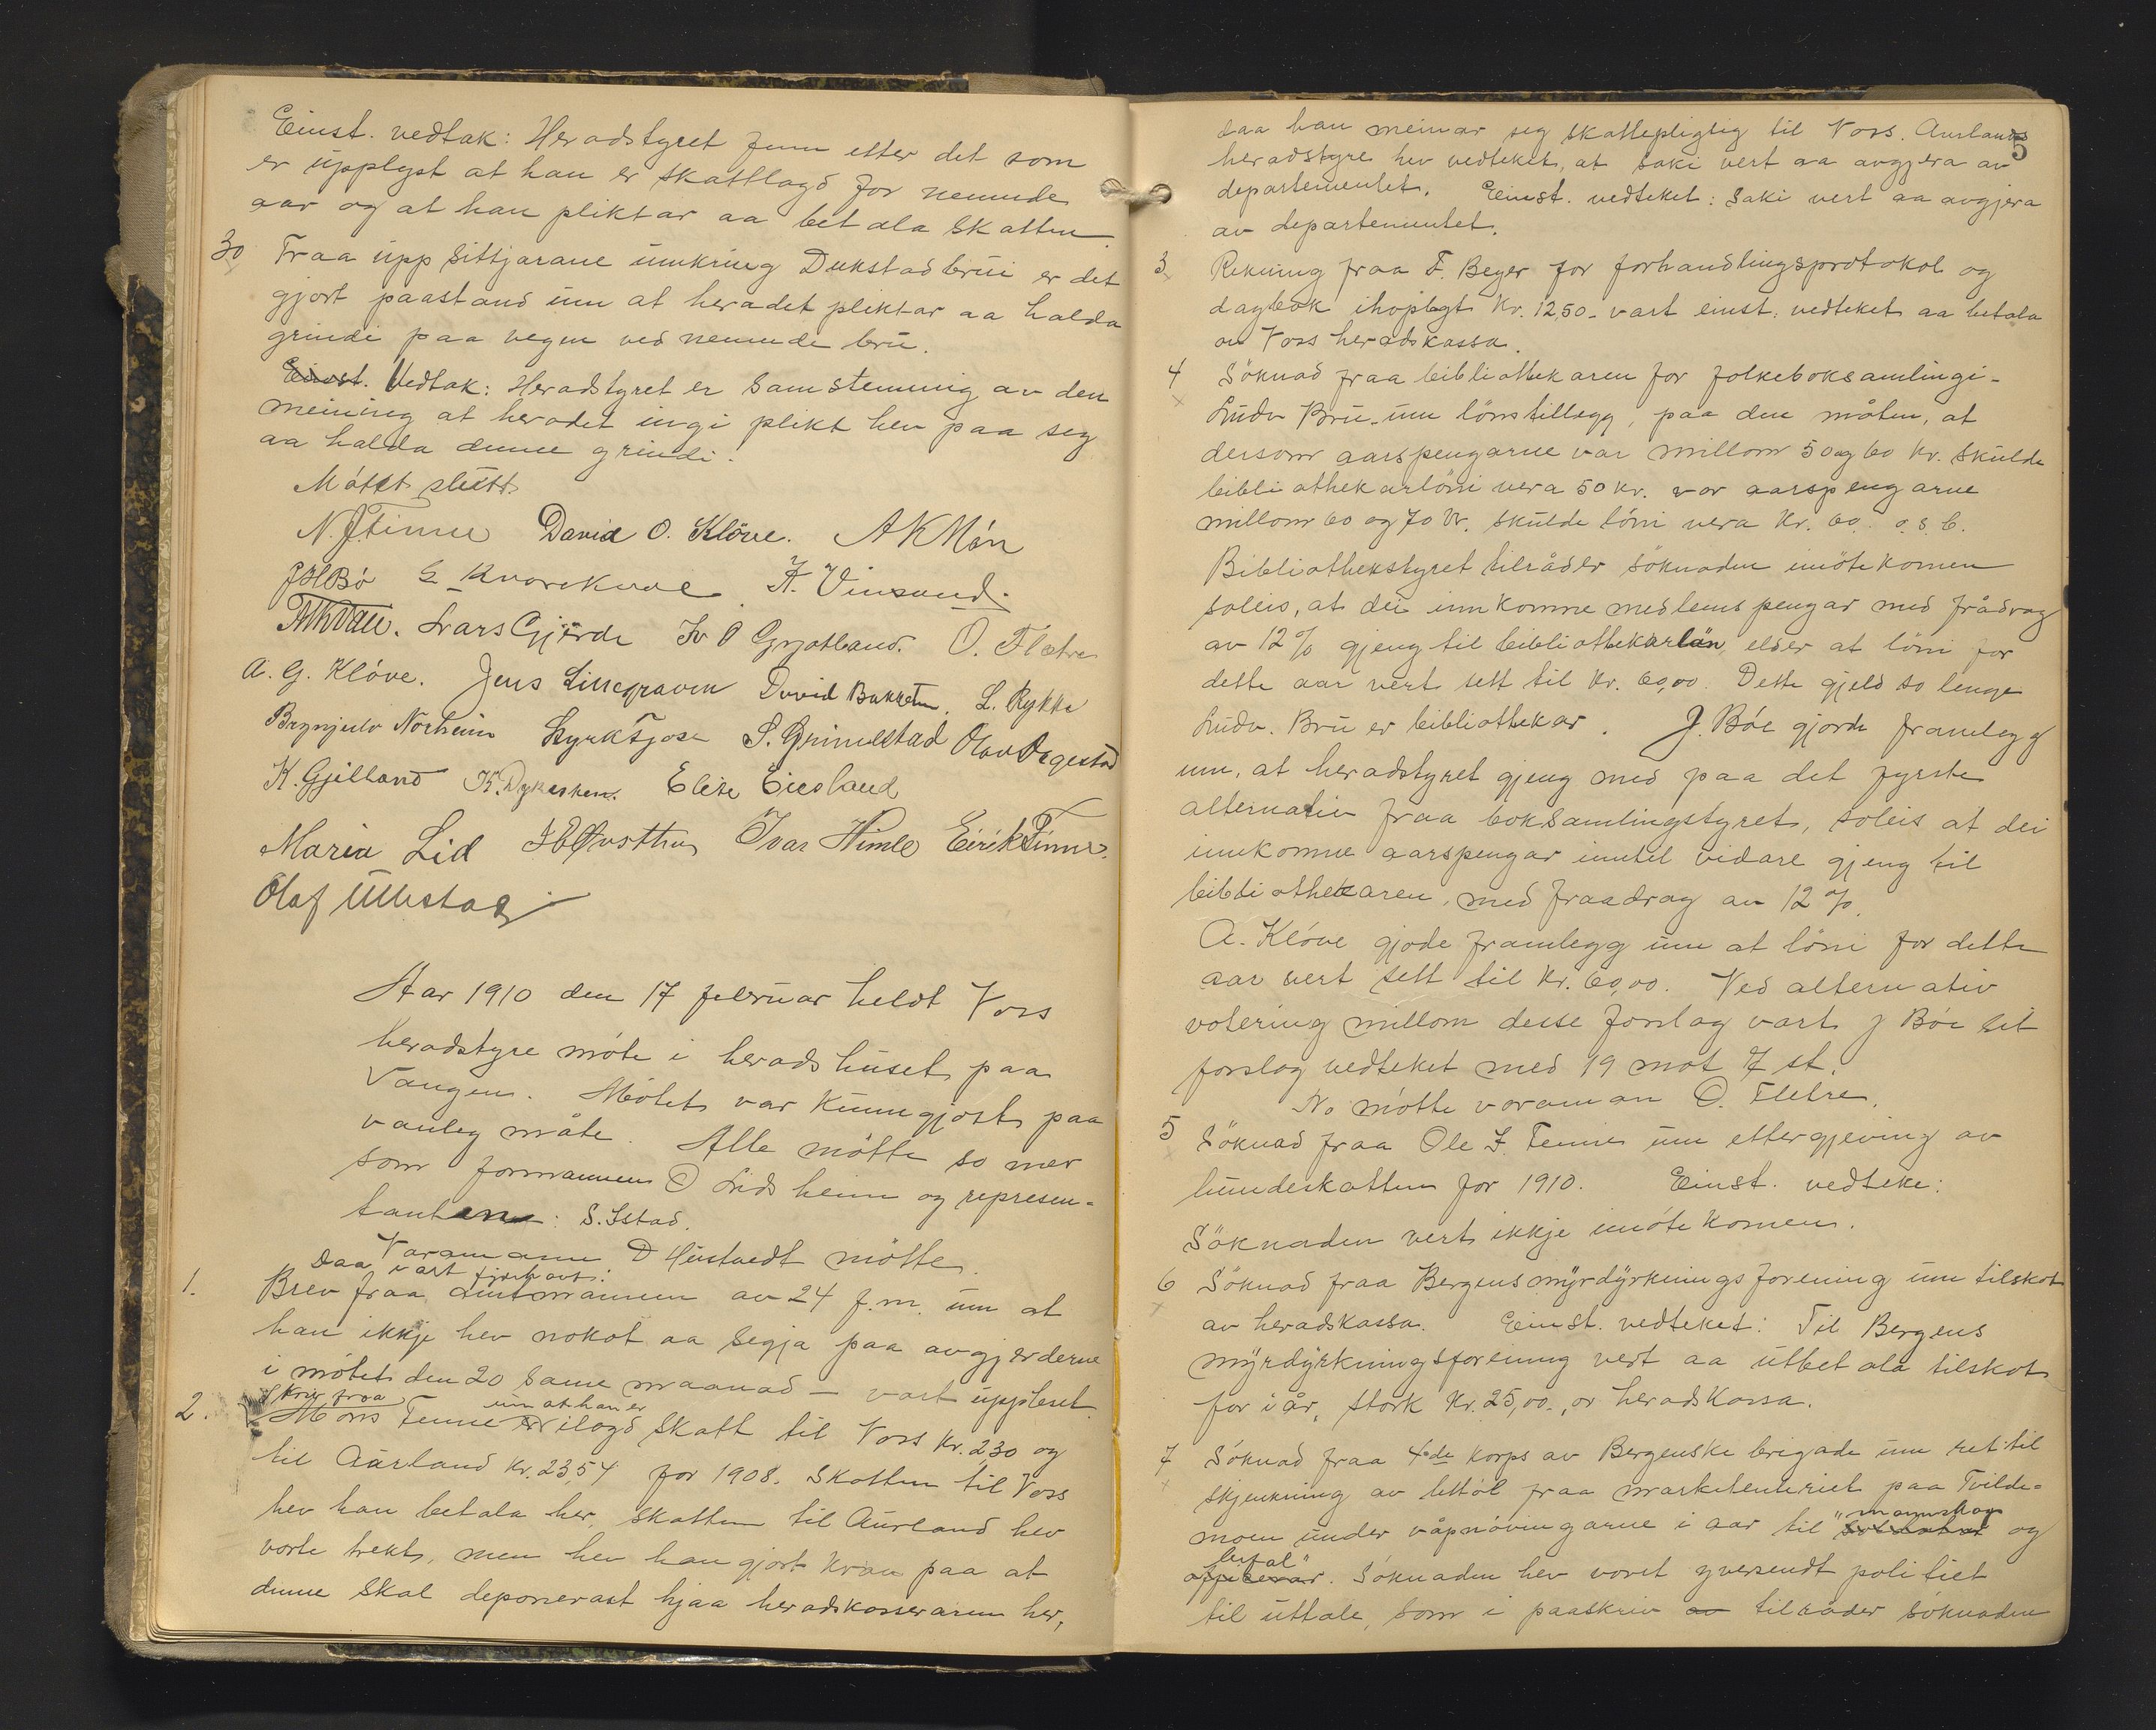 Einst. vedtak: Heradstyret finn etter det som
er upplyst at han er skattlagd for nemnde
aar og at han pliktar aa betala skatten.
30 Fraa uppsittjarane umkring Dukstadbrui er det
gjort paastand um at heradet pliktar aa halda
grindi paa vegen ved nemnde bru.
Einst. Vedtak: Heradstyret er samstemmig av den
meining at heradet ingi plikt hev paa seg
aa halda denne grindi.
Mötet slutt
N. J. Finne David O. Klöve. A K Mön
J H Bö G Kvarekvaal A. Vinsand.
Lars Gjerde Iv O Grjotland. O. Fletre
A. G. Klöve. Jens Lillegraven David Bakketun. L. Rykke
Brynjulv Norheim Lyrktjosa S. Grimestad OlavÆgestad
K. Gjilland K. Dykesten. Elise Eirsland
Maria Lid Ivar Himle Eirik Finne.
Olaf Ullestad
Aar 1910 den 17 februar heldt Voss
heradstyre möte i heradshuset paa
Vangen. Mötet var kunngjort paa
vanleg måte. Alle mötte so nær
som formannen O Lidsheim og represen-
tanten: S. Istad.
Varamann D Hustvedt mötte.
Daa vart fyreteket:
1. Brev fraa amtmannen av 24 f.m. um at
han ikkje hev nokot aa segja paa avgjerderne
i mötet den 20 same maanad – vart upplesit.
2. Skriv fraa um at han er
Mons Finne er ilagd skatt til Voss kr. 2,30 og
til Aurland kr. 23,54 for 1908. Skatten til Voss
hev han betala her, skatten til Aurland hev
vorte trekt, men hev han gjort krav paa at
denne skal deponerast hjaa heradskasseraren her,
5
daa han meinar seg skattepligtig til Voss. Aurlands
heradstyre hev vedteket, at saki vert aa avgjera av
departementet. Einst. vedteket: Saki vert aa avgjera
av departementet.
3 Rekning fraa F. Beyer for forhandlingsprotokol og
dagbok ihoplagt Kr. 12,50 - vart einst. vedteket aa betala
av Voss heradskassa.
4 Söknad fraa bibliothekaren for folkeboksamlingi -
Ludv Bru - um lönstillegg, paa den måten, at
dersom aarspengarne var millom 50 og 60 kr. skulde
bibliothekarlöni vera 50 kr. var aarspengarne
millom 60 og 70 kr. skulde löni vera Kr. 60. o.s.b.
Bibliothekstyret tilråder söknaden imötekomen
soleis, at dei innkomne medlemspengar med frådrag
av 12 % gjeng til bibliothekarlön elder at löni for
dette aar vert sett til Kr. 60,00. Dette gjeld so lenge
Ludv. Bru er bibliothekar. J. Böe gjorde framlegg
um, at heradstyret gjeng med paa det fyrste
alternativ fraa boksamlingstyret, soleis at dei
innkomne aarspengar inntil vidare gjeng til
bibliothekaren, med fraadrag av 12 %.
A. Klöve gjode framlegg um at löni for dette
aar vert sett til Kr. 60,00. Ved alternativ
votering millom desse forslag vart J Böe sit
forslag vedteket med 19 mot 7 st.
No mötte varaman O. Fletre.
5 Söknad fraa Ole I. Finne um ettergjeving av
hundeskatten for 1910. Einst. vedteke:
Söknaden vert ikkje imötekomen.
6 Söknad fraa Bergens myrdyrkningsforening um tilskot
av heradskassa. Einst. vedteket: Til Bergens
myrdyrkningsforening vert aa utbetala tilskot
for i år, stork Kr. 25,00, or heradskassa.
7 Söknad fraa 4de korps av Bergenske brigade um ret til
skjenkning av lettöl fraa marketenteriet paa Tvilde-
moen under våpnövingarne i aar til "mannskap soldatar og
befal" officerar. Söknaden hev voret yversendt politiet
til uttale, som i paaskriv av tilråder söknaden